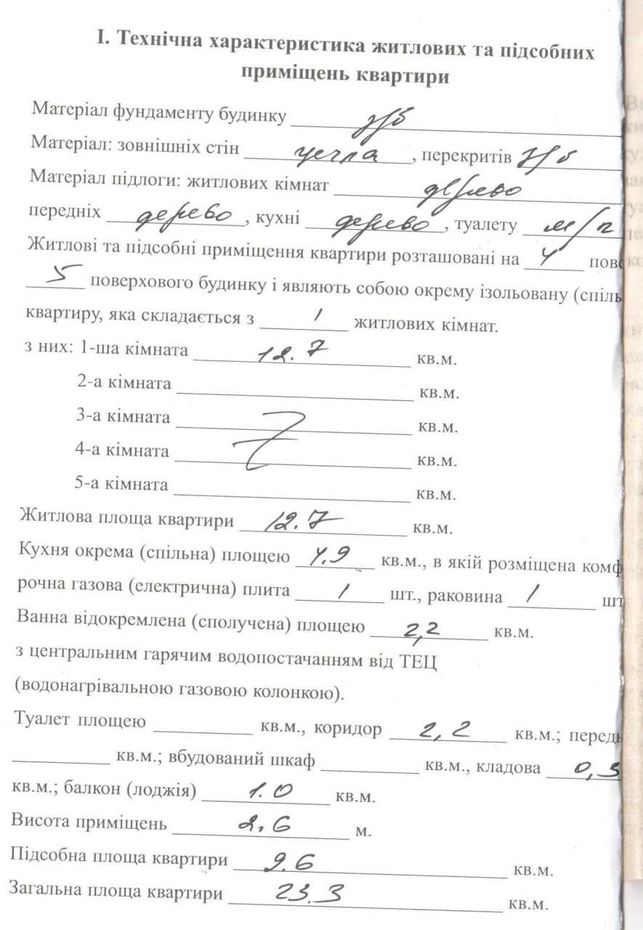 І. Технічна характеристика житлових та підсобних
приміщень квартири
Матеріал фундаменту будинку з/б
Матеріал: зовнішніх стін цегла, перекритів з/б
Матеріал підлоги: житлових кімнат дерево
передніх дерево, кухні дерево, туалету м/п
Житлові та підсобні приміщення квартири розташовані на 4 пове
5 поверхового будинку і являють собою окрему ізольовану (спіль
квартиру, яка складається з 1 житлових кімнат.
з них: 1-ша кімната 12.7 кв.м.
2-а кімната кв.м.
3-а кімната кв.м.
4-а кімната кв.м.
5-а кімната кв.м.
Житлова площа квартири 12.7 кв.м.
Кухня окрема (спільна) площею 4.9 кв.м., в якій розміщена комф
рочна газова (електрична) плита 1 шт., раковина 1 шт
Ванна відокремлена (сполучена) площею 2,2 кв.м.
з центральним гарячим водопостачанням від ТЕЦ
(водонагрівальною газовою колонкою).
Туалет площею кв.м., коридор 2,2 кв.м.; передн
кв.м.; вбудований шкаф кв.м., кладова 0,3
кв.м.; балкон (лоджія) 1.0 кв.м.
Висота приміщень 2.6 м.
Підсобна площа квартири 9.6 кв.м.
Загальна площа квартири 23.3 кв.м.